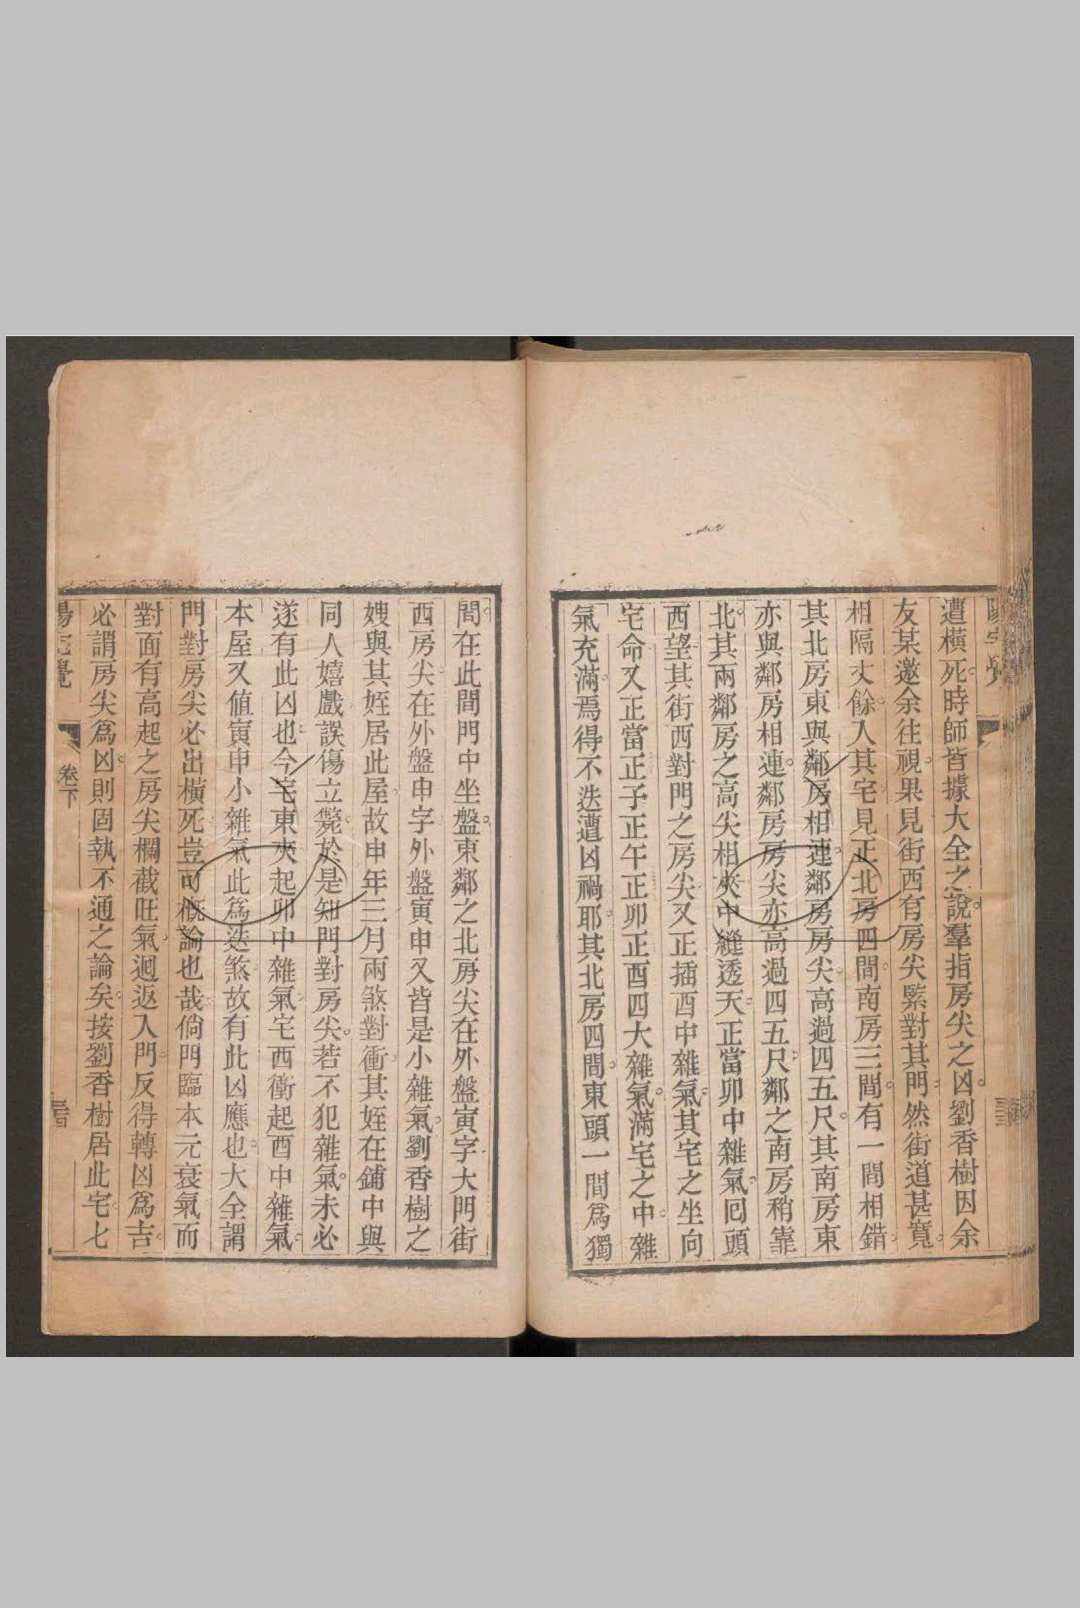 遭橫死時師皆據大全之說羣指房尖之凶劉香樹因余
友某邀余往視果見街西有房尖緊對其門然街道甚寬
相隔丈餘入其宅見正北房四間南房三間有一間相錯
其北房東與鄰房相連鄰房房尖高過四五尺其南房東
亦與鄰房相連鄰房房尖亦高過四五尺鄰之南房稍靠
北其兩鄰房之高尖相夾中縫透天正當卯中雜氣囘頭
西望其街西對門之房尖又正插酉中雜氣其宅之坐向
宅命又正當正子正午正卯正酉四大雜氣滿宅之中雜
氣充滿焉得不迭遭凶禍耶其北房四間東頭一間為獨
間在此間門中坐盤東鄰之北房尖在外盤寅字大門街
西房尖在外盤申字外盤寅申又皆是小雜氣劉香樹之
嫂與其姪居此屋故申年三月兩煞對衝其姪在鋪中與
同人嬉戲誤傷立斃於是知門對房尖若不犯雜氣未必
遂有此凶也今宅東夾起卯中雜氣宅西衝起酉中雜氣
本屋又值寅申小雜氣此為迭煞故有此凶應也大全謂
門對房尖必出橫死豈可概論也哉倘門臨本元衰氣而
對面有高起之房尖欄截旺氣迴返入門反得轉凶為吉
必謂房尖為凶則固執不通之論矣按劉香樹居此宅七
陽宅覺
卷下